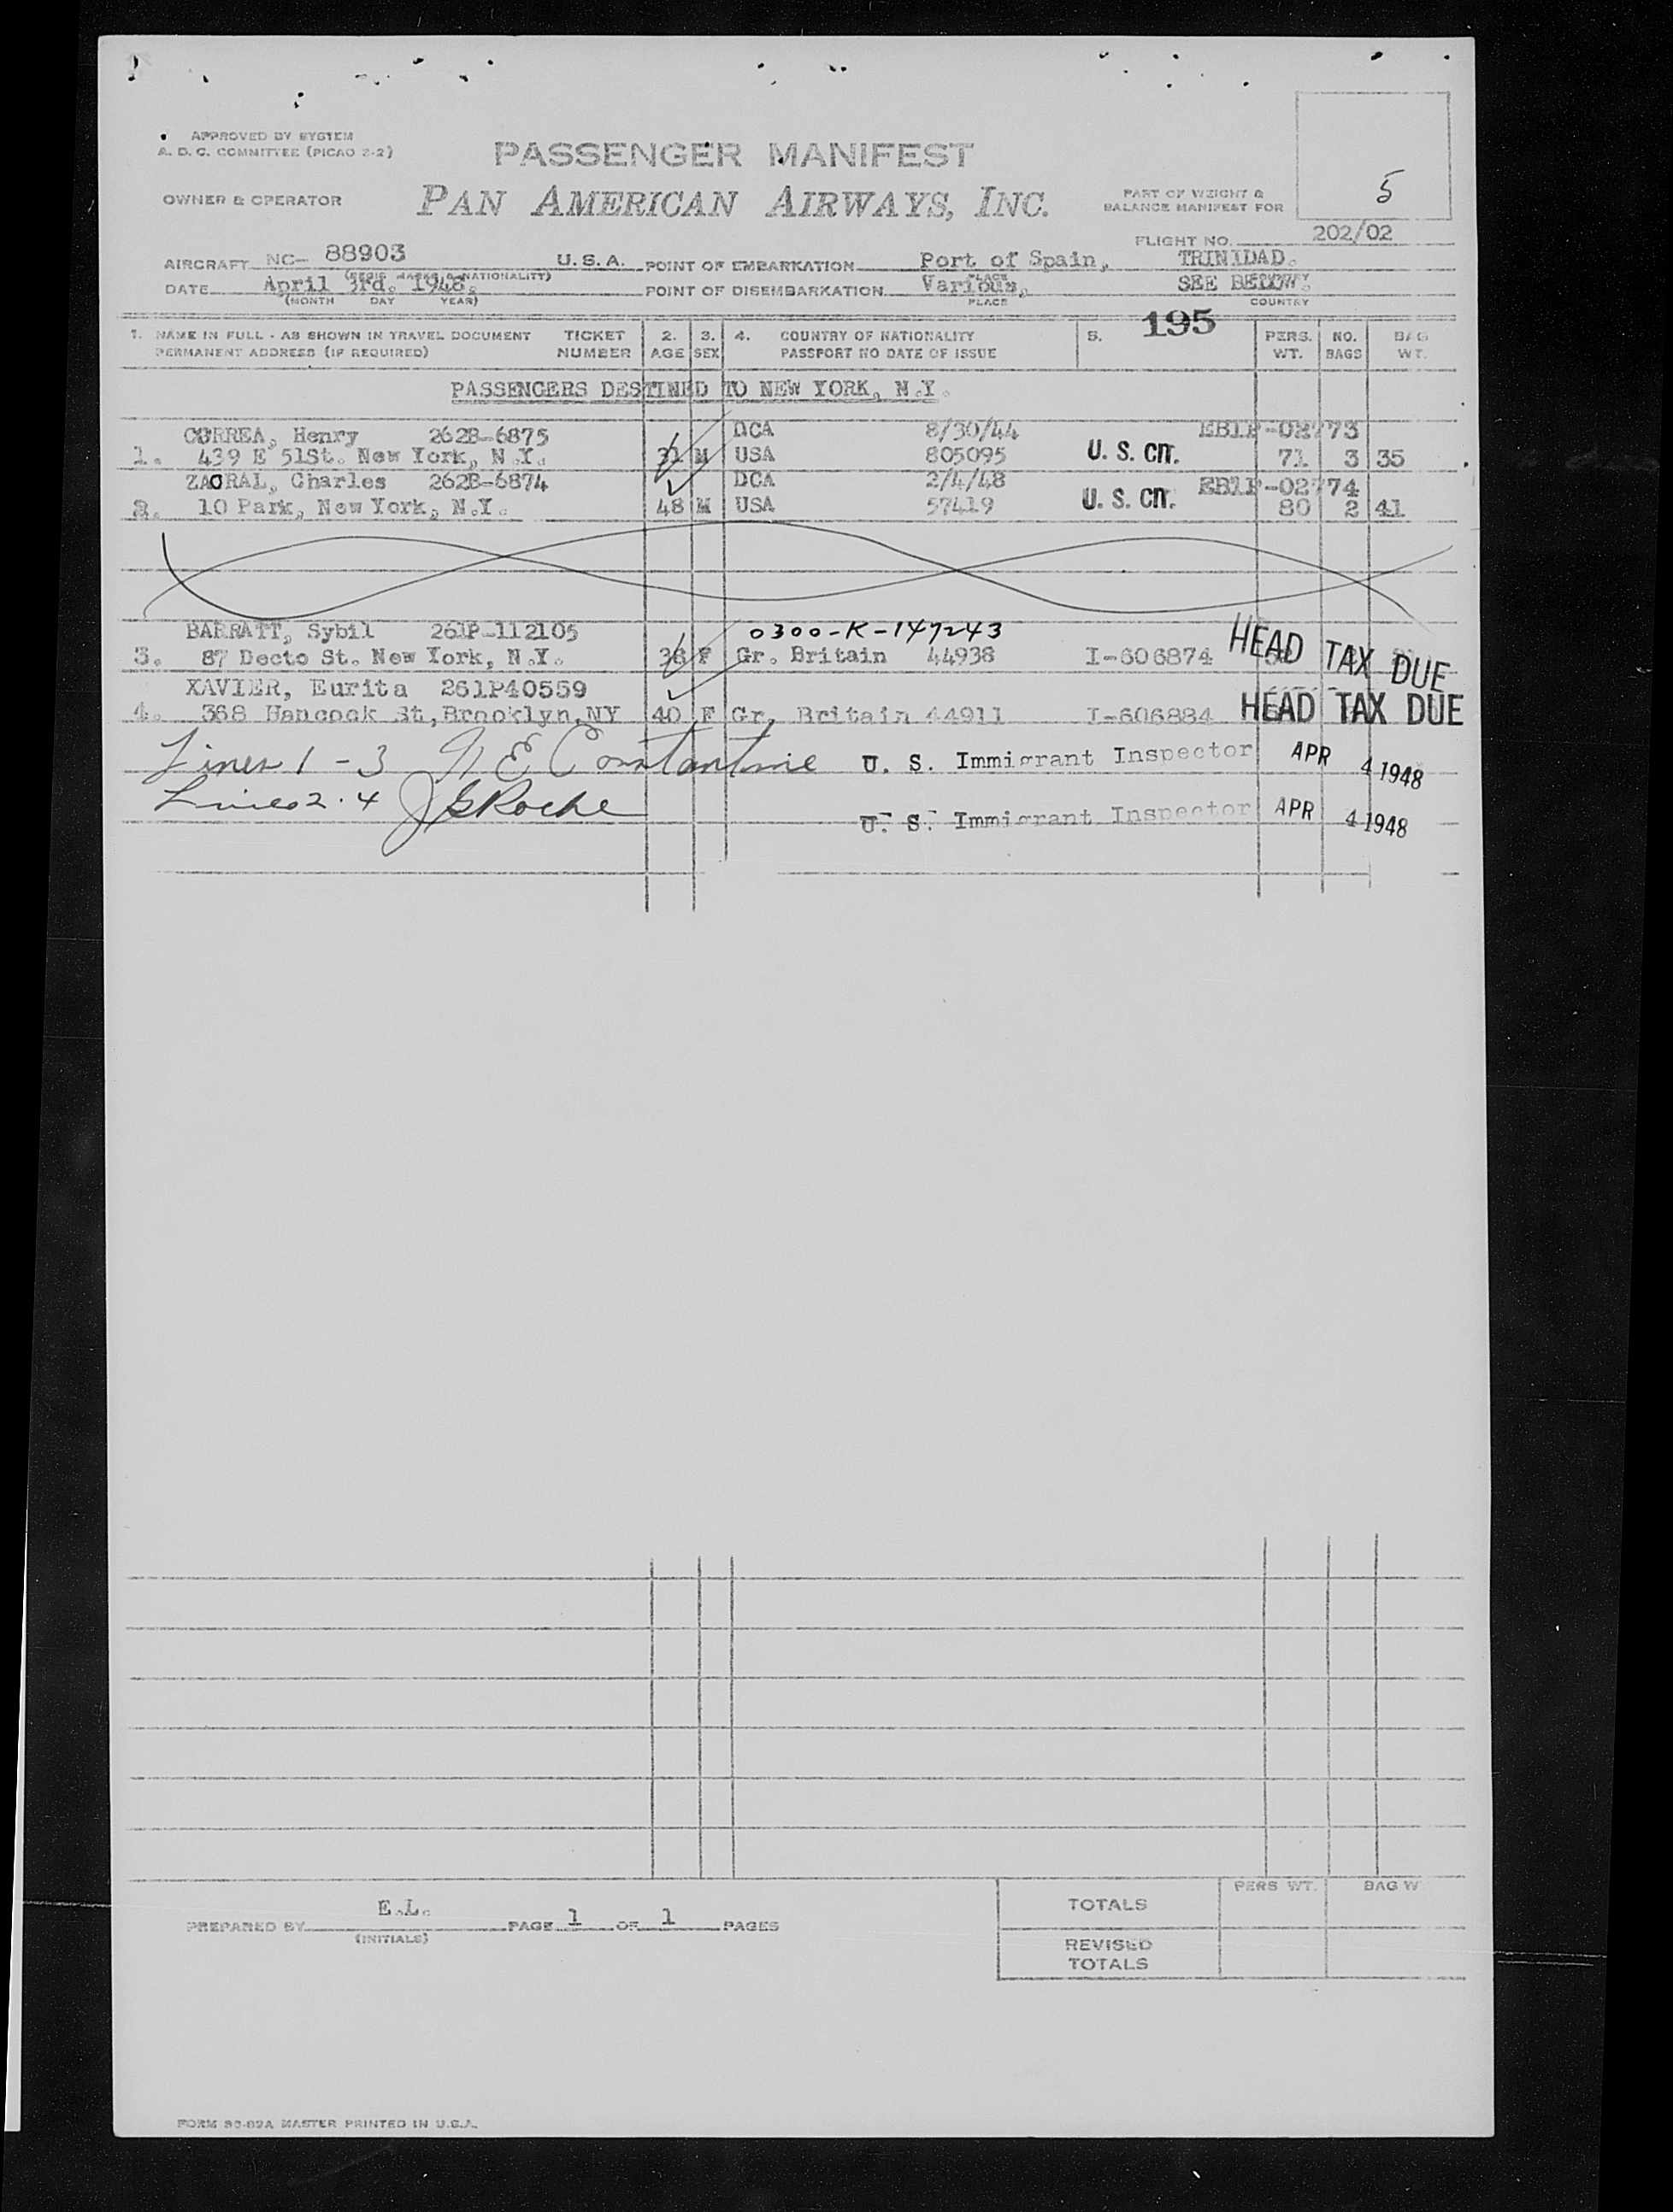 APPROVED BY SYSTEM
A. D. C. COMMITTEE (PICAO 2-2)
PASSENGER MANIFEST
OWNER & OPERATOR
PAN AMERICAN AIRWAYS, INC.
PART OF WEIGHT &
BALANCE MANIFEST FOR
5
FLIGHT NO. 202/02
AIRCRAFT NC- 88903 U.S.A. POINT OF EMBARKATION Port of Spain, TRINIDAD.
(REGIS. MARKS & NATIONALITY) PLACE COUNTRY
DATE April 3rd. 1948. POINT OF DISEMBARKATION Various, SEE BELOW.
(MONTH DAY YEAR) PLACE COUNTRY
1. NAME IN FULL - AS SHOWN IN TRAVEL DOCUMENT TICKET 2. 3. 4. COUNTRY OF NATIONALITY 5. 195 PERS. NO. BAG
PERMANENT ADDRESS (IF REQUIRED) NUMBER AGE SEX PASSPORT NO DATE OF ISSUE WT. BAGS WT.
PASSENGERS DESTINED TO NEW YORK, N.Y.
CORREA, Henry 262B-6875 DCA 8/30/44 EB1P-02773
1. 439 E 51St. New York, N.Y. 31 M USA 805095 U. S. CIT. 71 3 35
ZAORAL, Charles 262B-6874 DCA 2/4/48 EB1P-02774
2. 10 Park, New York, N.Y. 48 M USA 57419 U. S. CIT. 80 2 41
BARRATT, Sybil 261P-112105 0300-K-147243
3. 87 Decto St. New York, N.Y. 38 F Gr. Britain 44938 I-606874 HEAD TAX DUE
XAVIER, Eurita 261P40559
4. 368 Hancock St, Brooklyn, NY 40 F Gr. Britain 44911 I-606884 HEAD TAX DUE
Lines 1 - 3 N E Constantine U. S. Immigrant Inspector APR 4 1948
Lines 2 - 4 J G Roche U. S. Immigrant Inspector APR 4 1948
PERS WT. BAG W
TOTALS
E.L.
PREPARED BY PAGE 1 OF 1 PAGES
(INITIALS)
REVISED
TOTALS
FORM 80-82A MASTER PRINTED IN U.S.A.